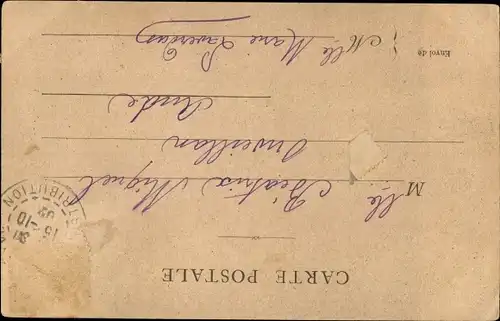 CARTE POSTALE
Mlle Béatrix Miquel
Ouveillan
Aude
Envoi de
Mlle Marie
DISTRIBUTION
15-10